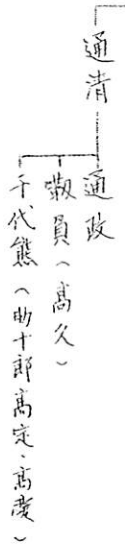 通清
通政
敬員（高久）
千代熊（助十郎高定・高慶）